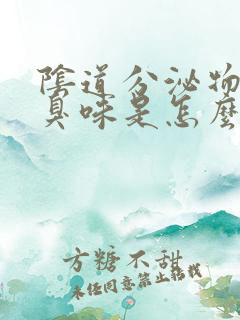 陰道分泌物
臭味是怎麼
方糖不甜
未经同意禁止转载